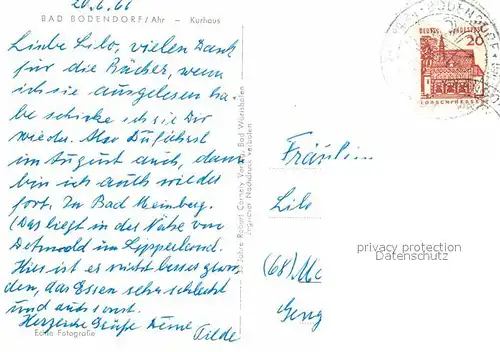 20.6.66
BAD BODENDORF/Ahr – Kurhaus
Liebe Lilo, vielen Dank
für die Bücher, wenn
ich sie ausgelesen ha-
be schicke ich sie Dir
wieder. Also Du fährst
im August auch, dann
bin ich auch wieder
fort. In Bad Meinberg.
(Das liegt in der Nähe von
Detmold im Lipperland.
Hier ist es nicht besser gewor-
den, das Essen sehr schlecht
und auch sonst.
Herzliche Grüße Deine
Tilde
Echte Fotografie
Jahre Robert Verlag, Bad Wörishofen
Nachdruck verboten
DEUTSCHE BUNDESPOST
20
LORSCH/HESSEN
BODENDORF
Fräulein
Lilo
(68)
privacy protection
Datenschutz